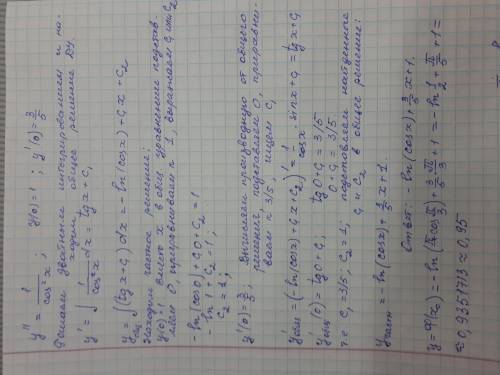 y'' = 1/cos²x ; y(0)=1 ; y'(0)=3/5
Решаем двойным интегрированием и на-
ходим общее решение ДУ.
y' = ∫ 1/cos²x dx = tgx + C₁
y общ = ∫(tgx+C₁)dx = -ln(cosx) + C₁x + C₂
Находим частное решение:
y(0)=1 вместо x в общ уравнение подстав-
ляем 0, приравниваем к 1, выражаем C₁ или C₂
-ln(cos0) + C₁·0 + C₂ = 1
-ln1 + C₂ = 1;
C₂ = 1;
y'(0)=3/5; Вычисляем производную от общего
решения, подставляем 0, приравни-
ваем к 3/5, ищем C₁
y'общ = (-ln(cosx)+C₁x+C₂)' = 1/cosx · sinx + C₁ = tgx + C₁
y'общ(0) = tg0 + C₁ tg0 + C₁ = 3/5
0 + C₁ = 3/5
т.е C₁ = 3/5, C₂ = 1; подставляем найденные
C₁ и C₂ в общее решение:
y част = -ln(cosx) + 3/5 x + 1.
Ответ: -ln(cosx) + 3/5 x + 1.
≈ 0,9351713 ≈ 0,95